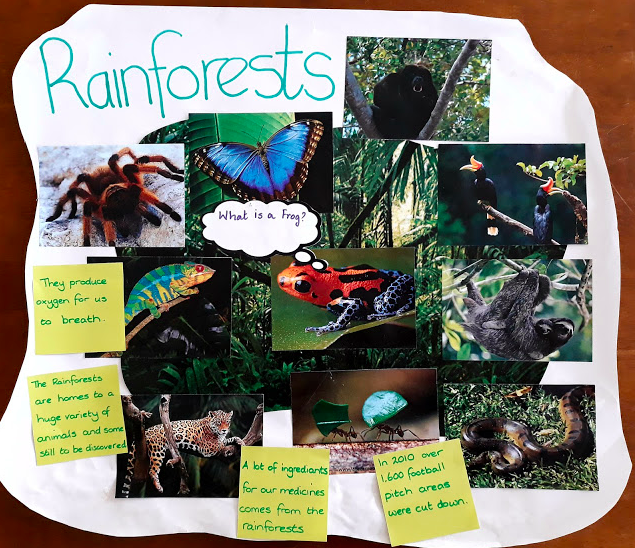 Rainforests
What is a Frog?
They produce
oxygen for us
to breath.
The Rainforests
are homes to a
huge variety of
animals and some
still to be discovered
A lot of ingrediants
for our medicines
comes from the
rainforests
In 2010 over
1.600 football
pitch areas
were cut down.